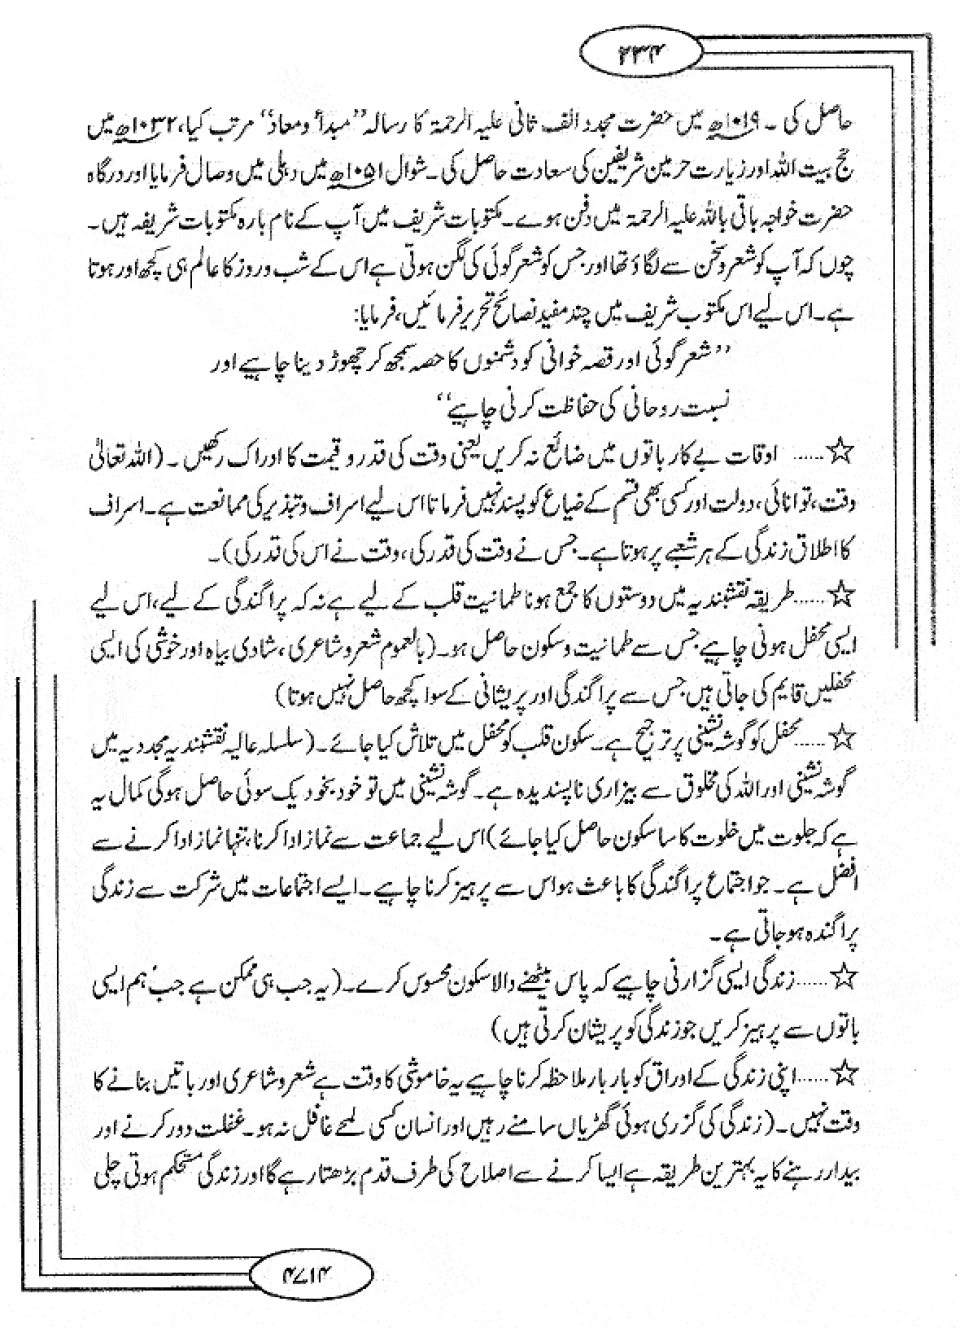 ۲۳۴
حاصل کی ۔ ۱۰۱۹ھ میں حضرت مجدد الف ثانی علیہ الرحمۃ کا رسالہ ”مبدأ ومعاد“ مرتب کیا، ۱۰۳۲ھ میں
حج بیت اللہ اور زیارت حرمین شریفین کی سعادت حاصل کی۔ شوال ۱۰۵۱ھ میں دہلی میں وصال فرمایا اور درگاہ
حضرت خواجہ باقی باللہ علیہ الرحمۃ میں دفن ہوے۔ مکتوبات شریف میں آپ کے نام بارہ مکتوبات شریفہ ہیں۔
چوں کہ آپ کو شعر و سخن سے لگاؤ تھا اور جس کو شعر گوئی کی لگن ہوتی ہے اس کے شب و روز کا عالم ہی کچھ اور ہوتا
ہے۔ اس لیے اس مکتوب شریف میں چند مفید نصائح تحریر فرمائیں، فرمایا:
”شعر گوئی اور قصہ خوانی کو دشمنوں کا حصہ سمجھ کر چھوڑ دینا چاہیے اور
نسبت روحانی کی حفاظت کرنی چاہیے“
☆..... اوقات بے کار باتوں میں ضائع نہ کریں یعنی وقت کی قدر و قیمت کا ادراک رکھیں ۔ (اللہ تعالیٰ
وقت، توانائی، دولت اور کسی بھی قسم کے ضیاع کو پسند نہیں فرماتا اس لیے اسراف و تبذیر کی ممانعت ہے۔ اسراف
کا اطلاق زندگی کے ہر شعبے پر ہوتا ہے۔ جس نے وقت کی قدر کی، وقت نے اس کی قدر کی)۔
☆..... طریقہ نقشبندیہ میں دوستوں کا جمع ہونا طمانیت قلب کے لیے ہے نہ کہ پراگندگی کے لیے، اس لیے
ایسی محفل ہونی چاہیے جس سے طمانیت و سکون حاصل ہو۔ (بالعموم شعر و شاعری، شادی بیاہ اور خوشی کی ایسی
محفلیں قایم کی جاتی ہیں جس سے پراگندگی اور پریشانی کے سوا کچھ حاصل نہیں ہوتا)
☆..... محفل کو گوشہ نشینی پر ترجیح ہے۔ سکون قلب کو محفل میں تلاش کیا جائے۔ (سلسلہ عالیہ نقشبندیہ مجددیہ میں
گوشہ نشینی اور اللہ کی مخلوق سے بیزاری ناپسندیدہ ہے۔ گوشہ نشینی میں تو خود بخود یک سوئی حاصل ہوگی کمال یہ
ہے کہ جلوت میں خلوت کا سا سکون حاصل کیا جائے) اس لیے جماعت سے نماز ادا کرنا، تنہا نماز ادا کرنے سے
افضل ہے۔ جو اجتماع پراگندگی کا باعث ہو اس سے پرہیز کرنا چاہیے۔ ایسے اجتماعات میں شرکت سے زندگی
پراگندہ ہوجاتی ہے۔
☆..... زندگی ایسی گزارنی چاہیے کہ پاس بیٹھنے والا سکون محسوس کرے۔ (یہ جب ہی ممکن ہے جب ہم ایسی
باتوں سے پرہیز کریں جو زندگی کو پریشان کرتی ہیں)
☆..... اپنی زندگی کے اوراق کو بار بار ملاحظہ کرنا چاہیے یہ خاموشی کا وقت ہے شعر و شاعری اور باتیں بنانے کا
وقت نہیں۔ (زندگی کی گزری ہوئی گھڑیاں سامنے رہیں اور انسان کسی لمحے غافل نہ ہو۔ غفلت دور کرنے اور
بیدار رہنے کا یہ بہترین طریقہ ہے ایسا کرنے سے اصلاح کی طرف قدم بڑھتا رہے گا اور زندگی مستحکم ہوتی چلی
۴۷۱۴